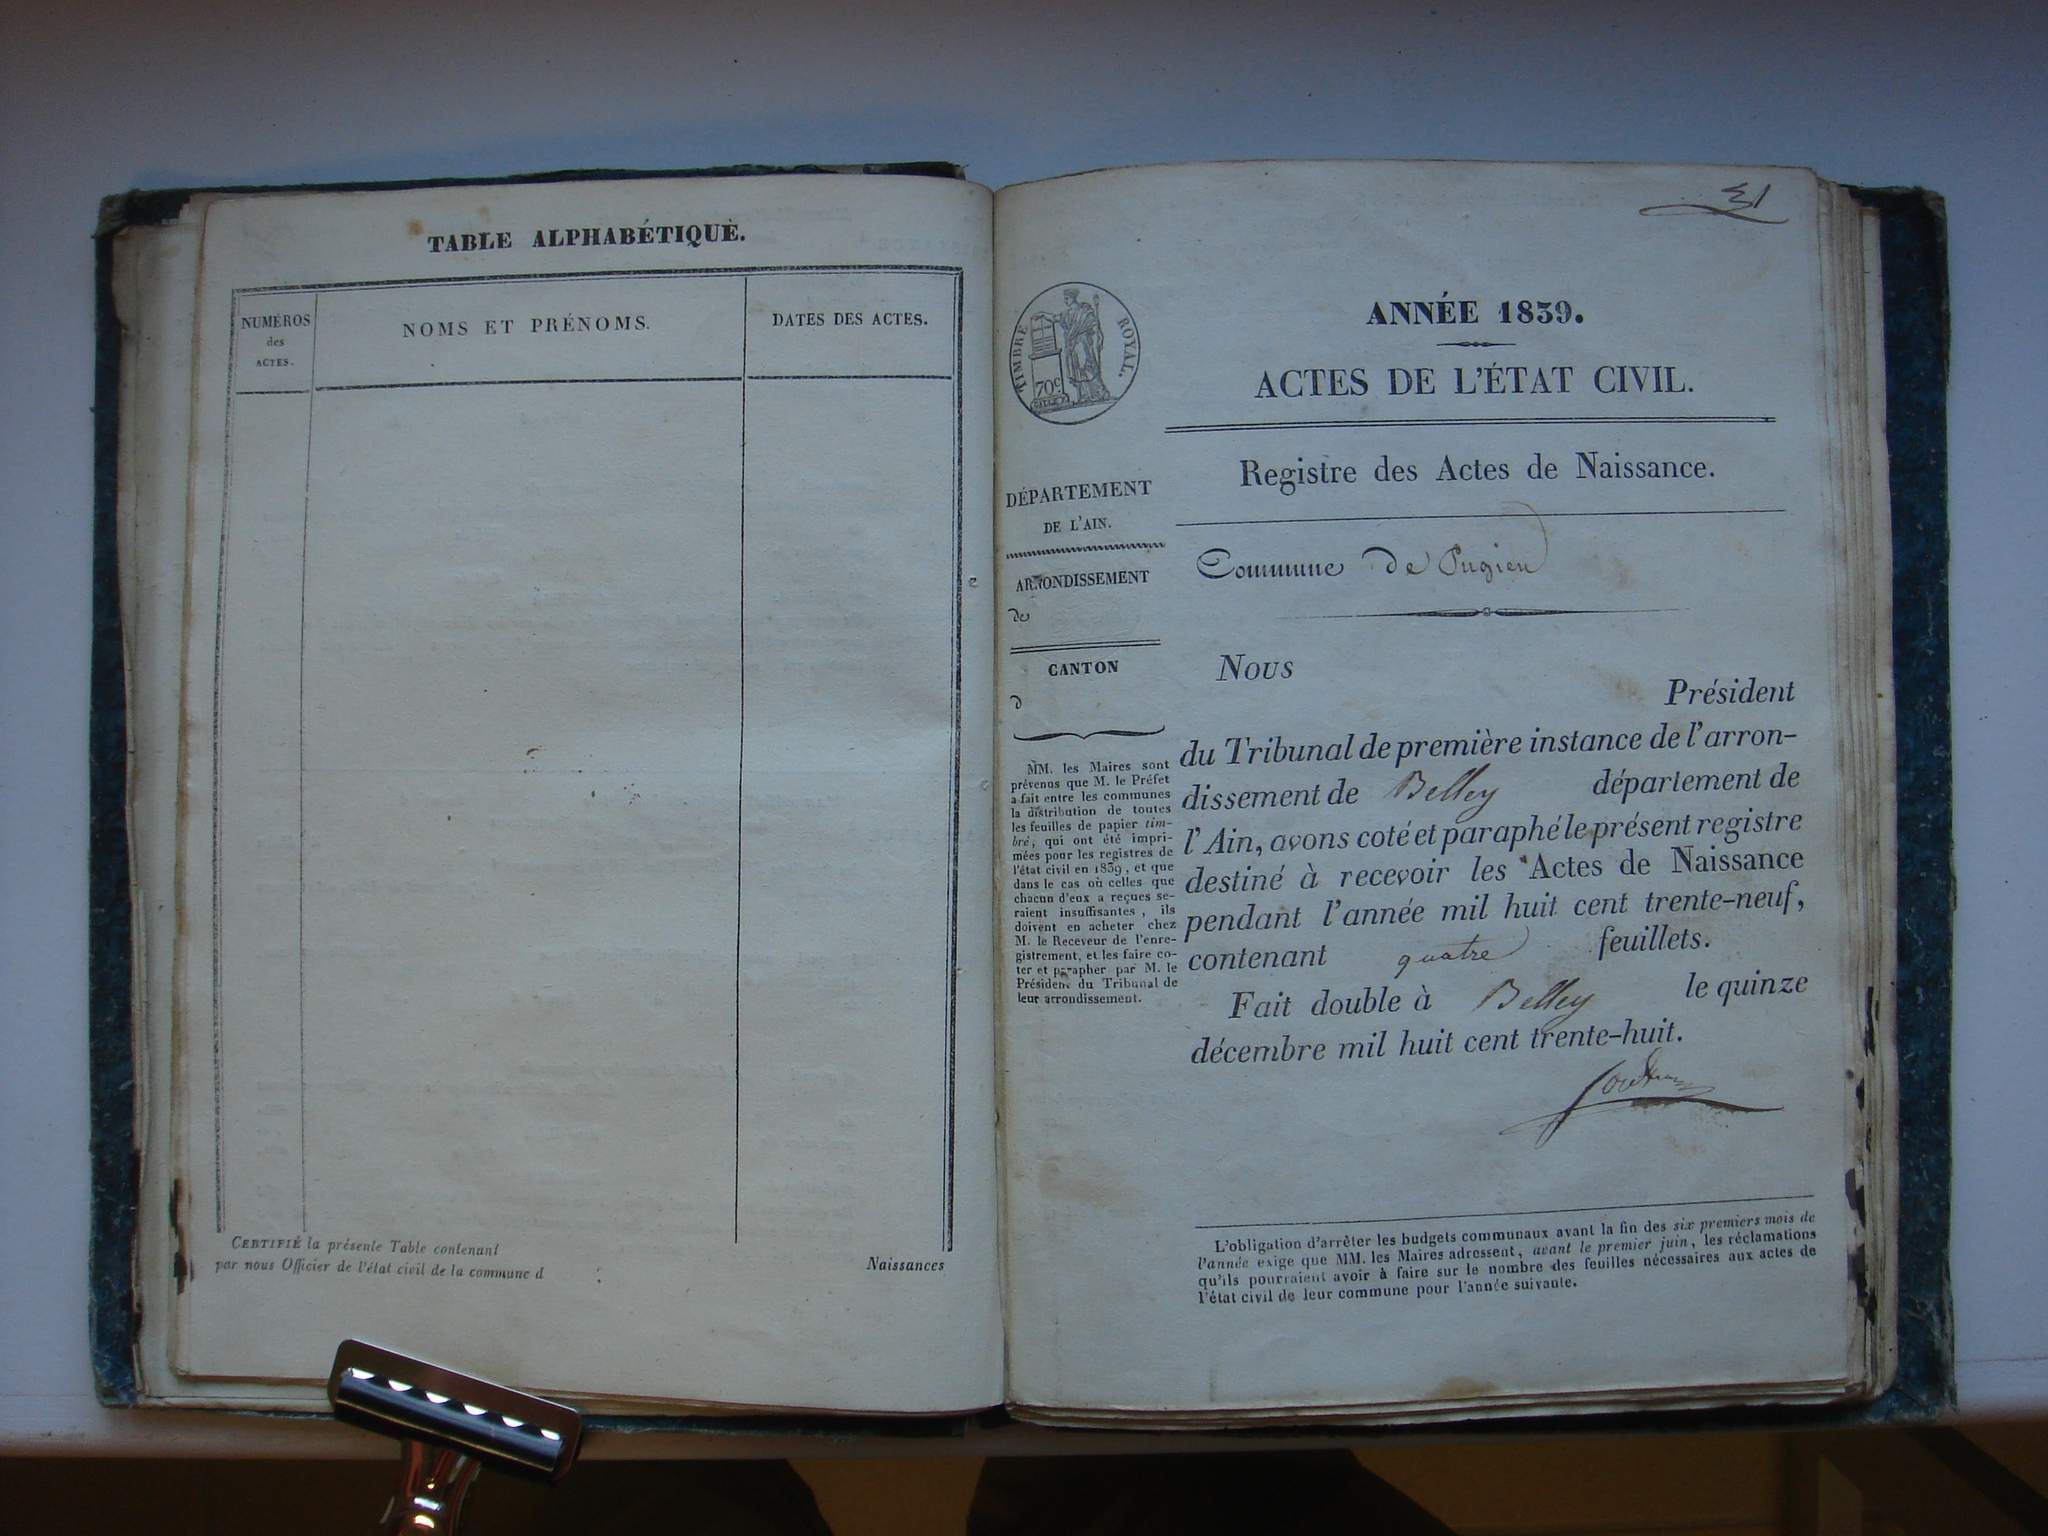 TABLE ALPHABÉTIQUE.
NUMÉROS
des
ACTES.
NOMS ET PRÉNOMS.
DATES DES ACTES.
CERTIFIÉ la présente Table contenant
Naissances
par nous Officier de l'état civil de la commune d
TIMBRE ROYAL.
70c
ANNÉE 1839.
ACTES DE L'ÉTAT CIVIL.
Registre des Actes de Naissance.
Commune de Pugieu
DÉPARTEMENT
DE L'AIN.
ARRONDISSEMENT
de
CANTON
d
MM. les Maires sont
prévenus que M. le Préfet
a fait entre les communes
la distribution de toutes
les feuilles de papier tim-
bré, qui ont été impri-
mées pour les registres de
l'état civil en 1839, et que
dans le cas où celles que
chacun d'eux a reçues se-
raient insuffisantes, ils
doivent en acheter chez
M. le Receveur de l'enre-
gistrement, et les faire co-
ter et parapher par M. le
Président du Tribunal de
leur arrondissement.
Nous
Président
du Tribunal de première instance de l'arron-
dissement de Belley département de
l'Ain, avons coté et paraphé le présent registre
destiné à recevoir les Actes de Naissance
pendant l'année mil huit cent trente-neuf,
contenant quatre feuillets.
Fait double à Belley le quinze
décembre mil huit cent trente-huit.
L'obligation d'arrêter les budgets communaux avant la fin des six premiers mois de
l'année exige que MM. les Maires adressent, avant le premier juin, les réclamations
qu'ils pourraient avoir à faire sur le nombre des feuilles nécessaires aux actes de
l'état civil de leur commune pour l'année suivante.